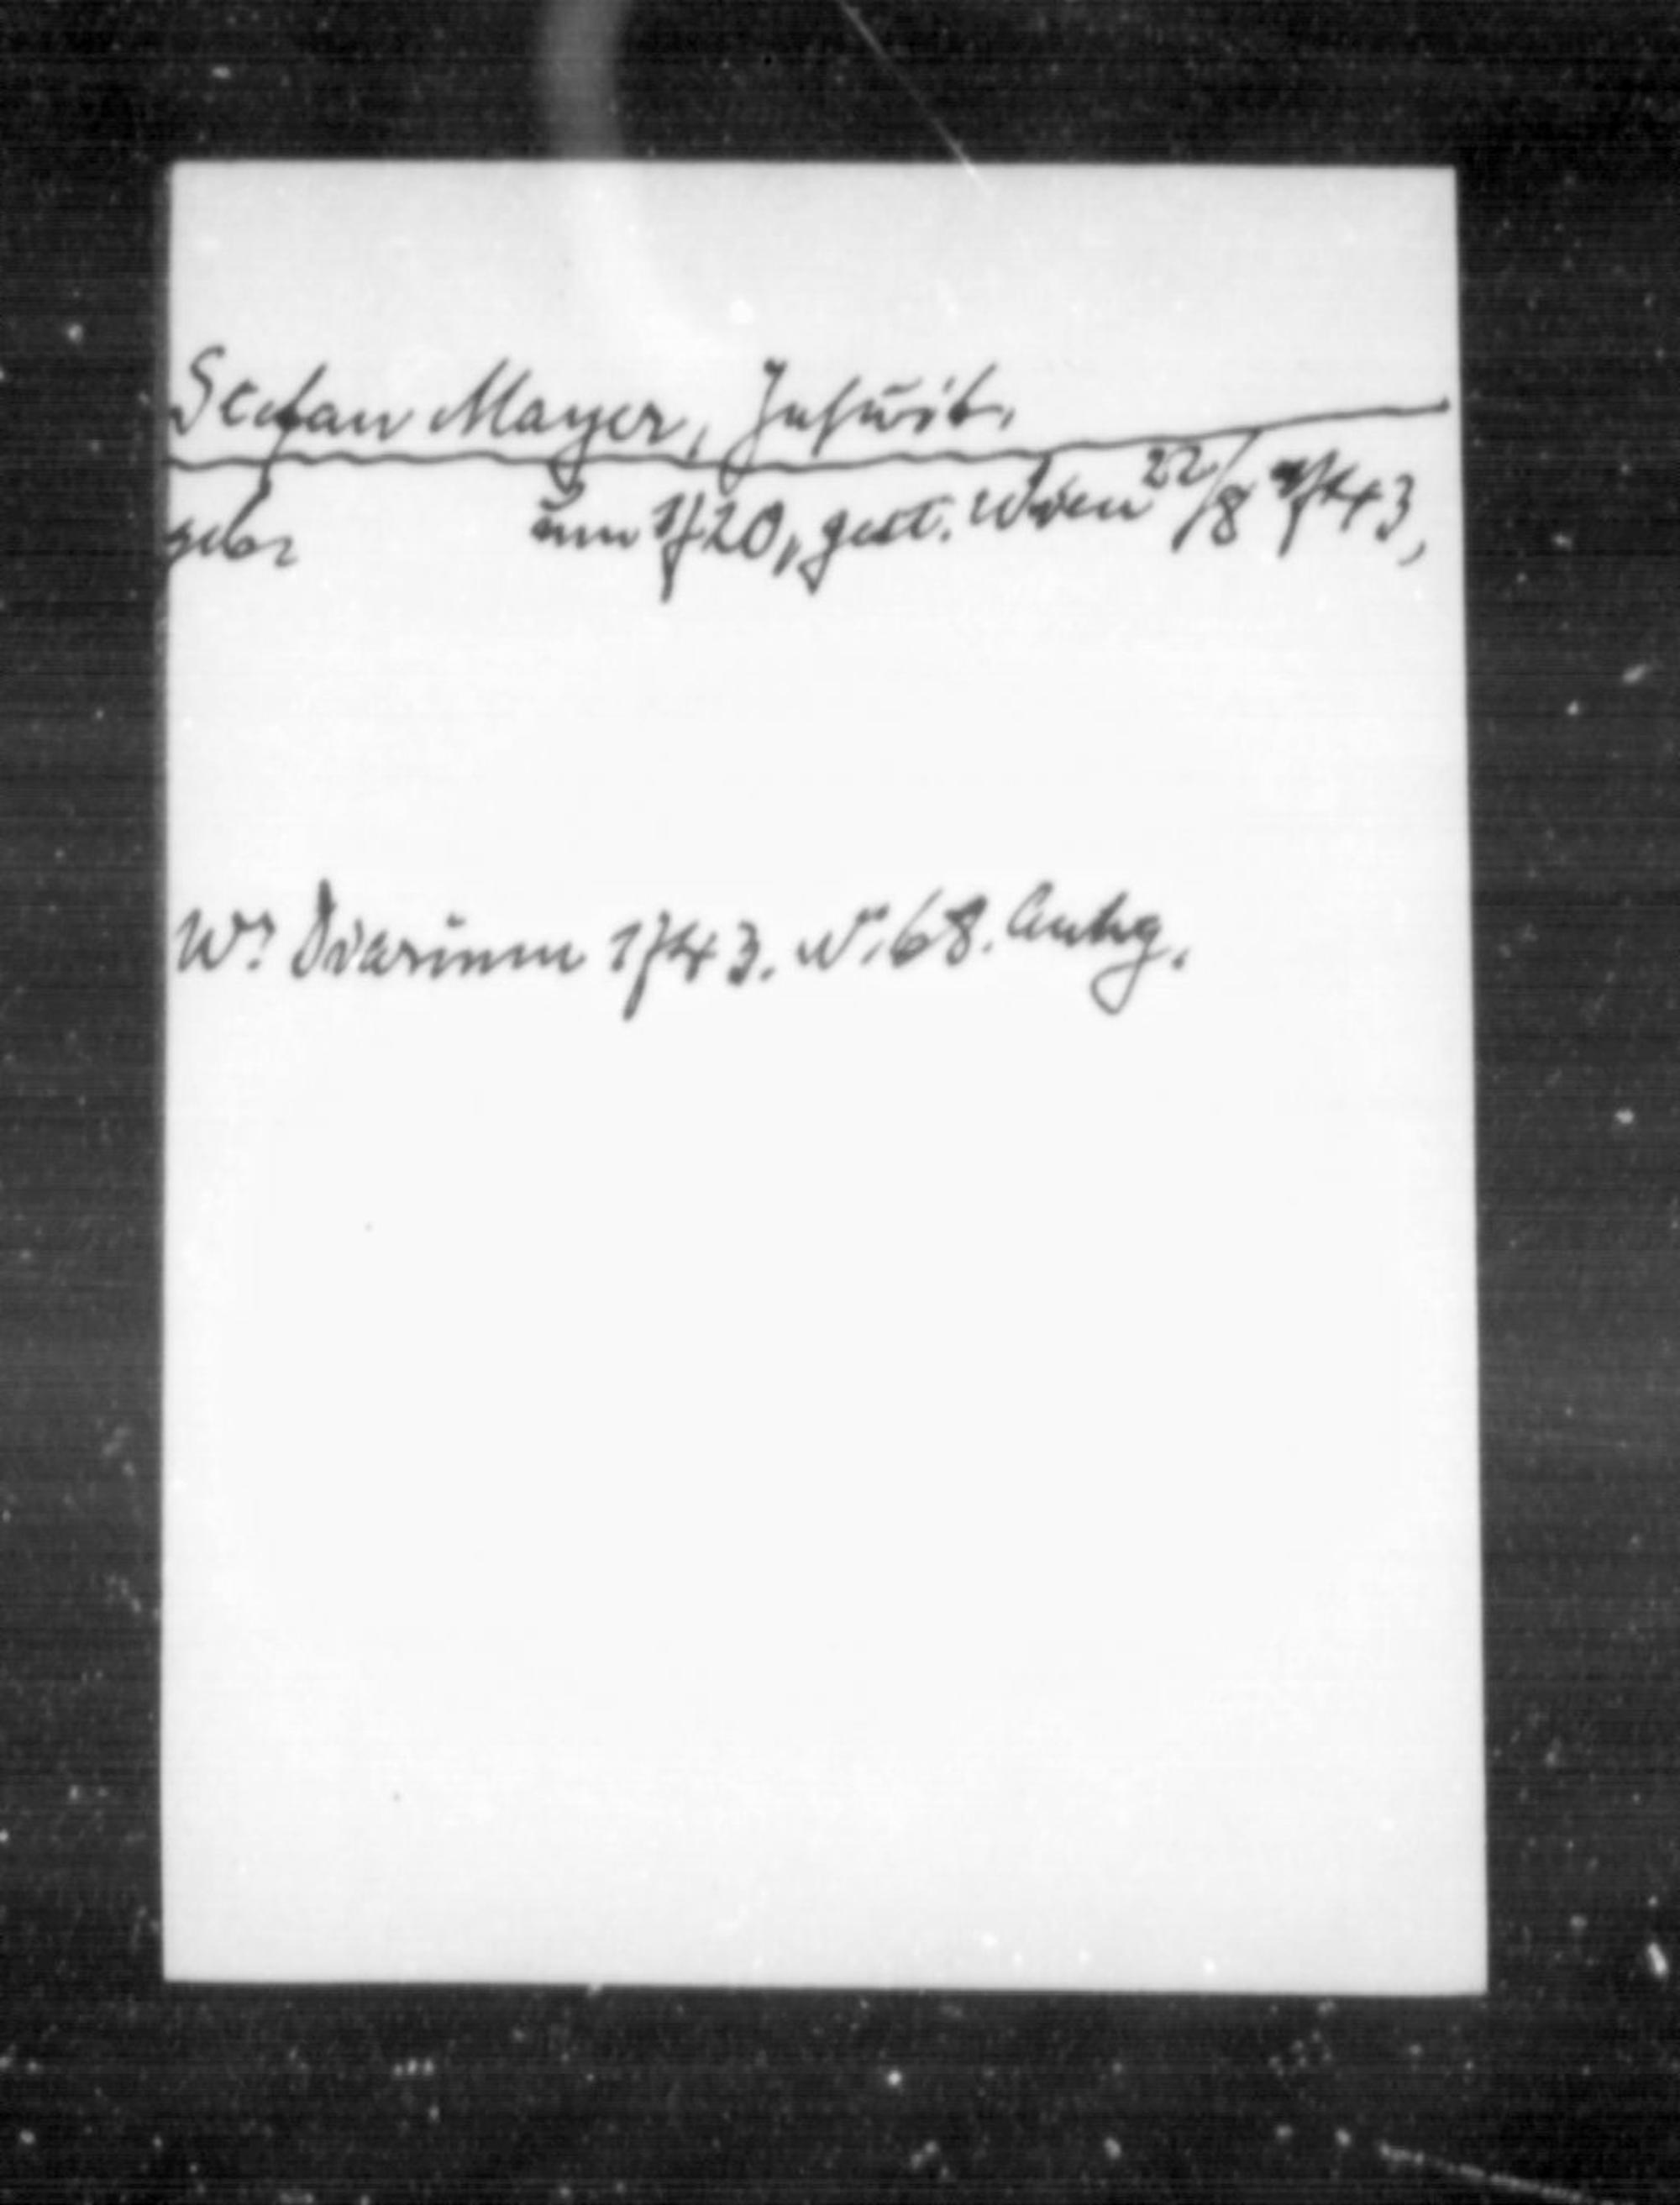 Stefan Mayer, Jesuit.
gebor um 1720, gest. Wien 22/8 1743,
Wr Diarium 1743. N. 68. Anhg.